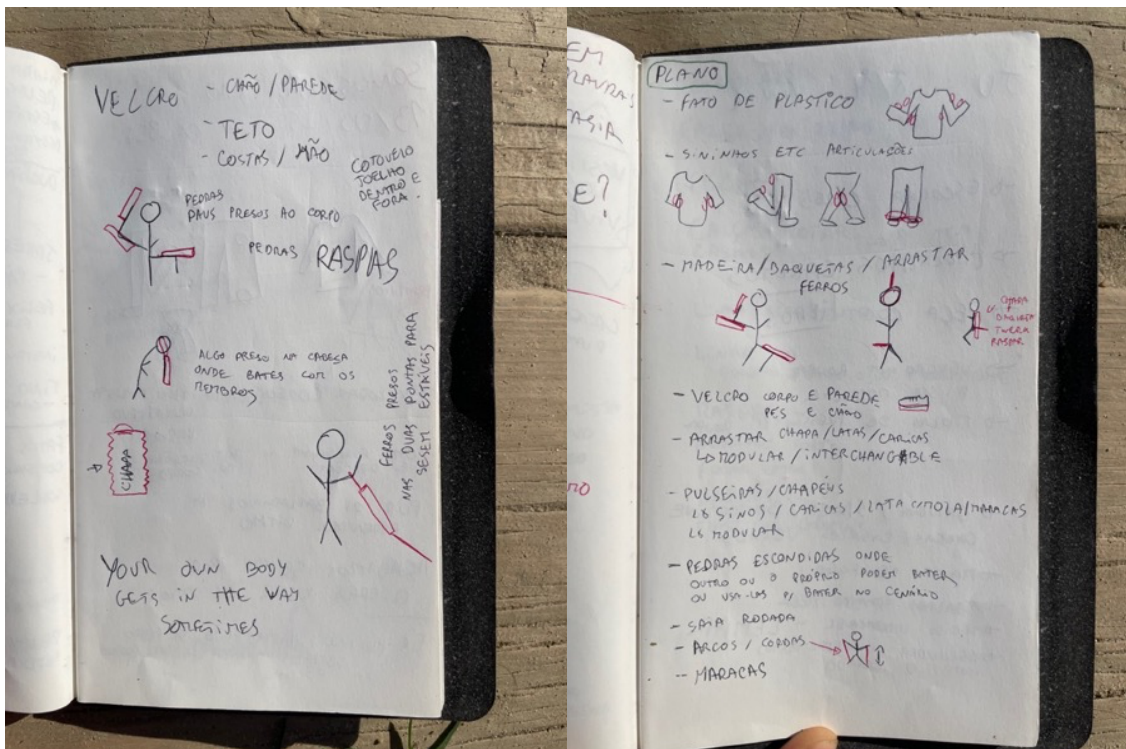 VELCRO - CHÃO / PAREDE
- TETO
- COSTAS / MÃO
COTOVELO
JOELHO
DENTRO E
FORA.
PEDRAS
PAUS PRESOS AO CORPO
PEDRAS RASPAS
ALGO PRESO NA CABEÇA
ONDE BATES COM OS
MEMBROS
CHAPA
FERROS PRESOS
NAS DUAS PONTAS PARA
SESEM ESTÁVEIS
YOUR OWN BODY
GETS IN THE WAY
SOMETIMES
EM
E?
PLANO
- FATO DE PLASTICO
- SININHOS ETC ARTICULAÇÕES
- MADEIRA / BAQUETAS / ARRASTAR
FERROS
CHAPA
+
BAQUETA
RASPAR
- VELCRO CORPO E PAREDE
PÉS E CHÃO
- ARRASTAR CHAPA / LATAS / CARICAS
↳ MODULAR / INTERCHANGABLE
- PULSEIRAS / CHAPÉUS
↳ SINOS / CARICAS / LATA C/MOLA / MARACAS
↳ MODULAR
- PEDRAS ESCONDIDAS ONDE
OUTRO OU O PRÓPRIO PODEM BATER
OU USA-LAS P/ BATER NO CENÁRIO
- SAIA RODADA
- ARCOS / CORDAS
- MARACAS